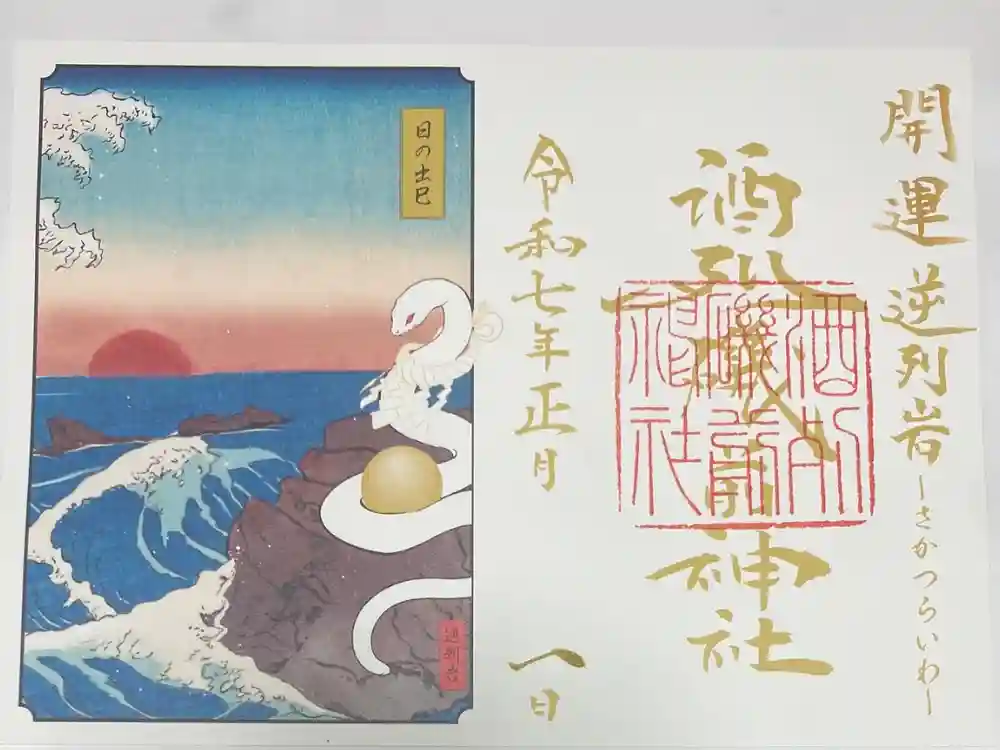 開運 逆列岩 ーさかつらいわー
酒列磯前神社
酒列
磯前
神社
令和七年正月 一日
日の出巳
逆列岩